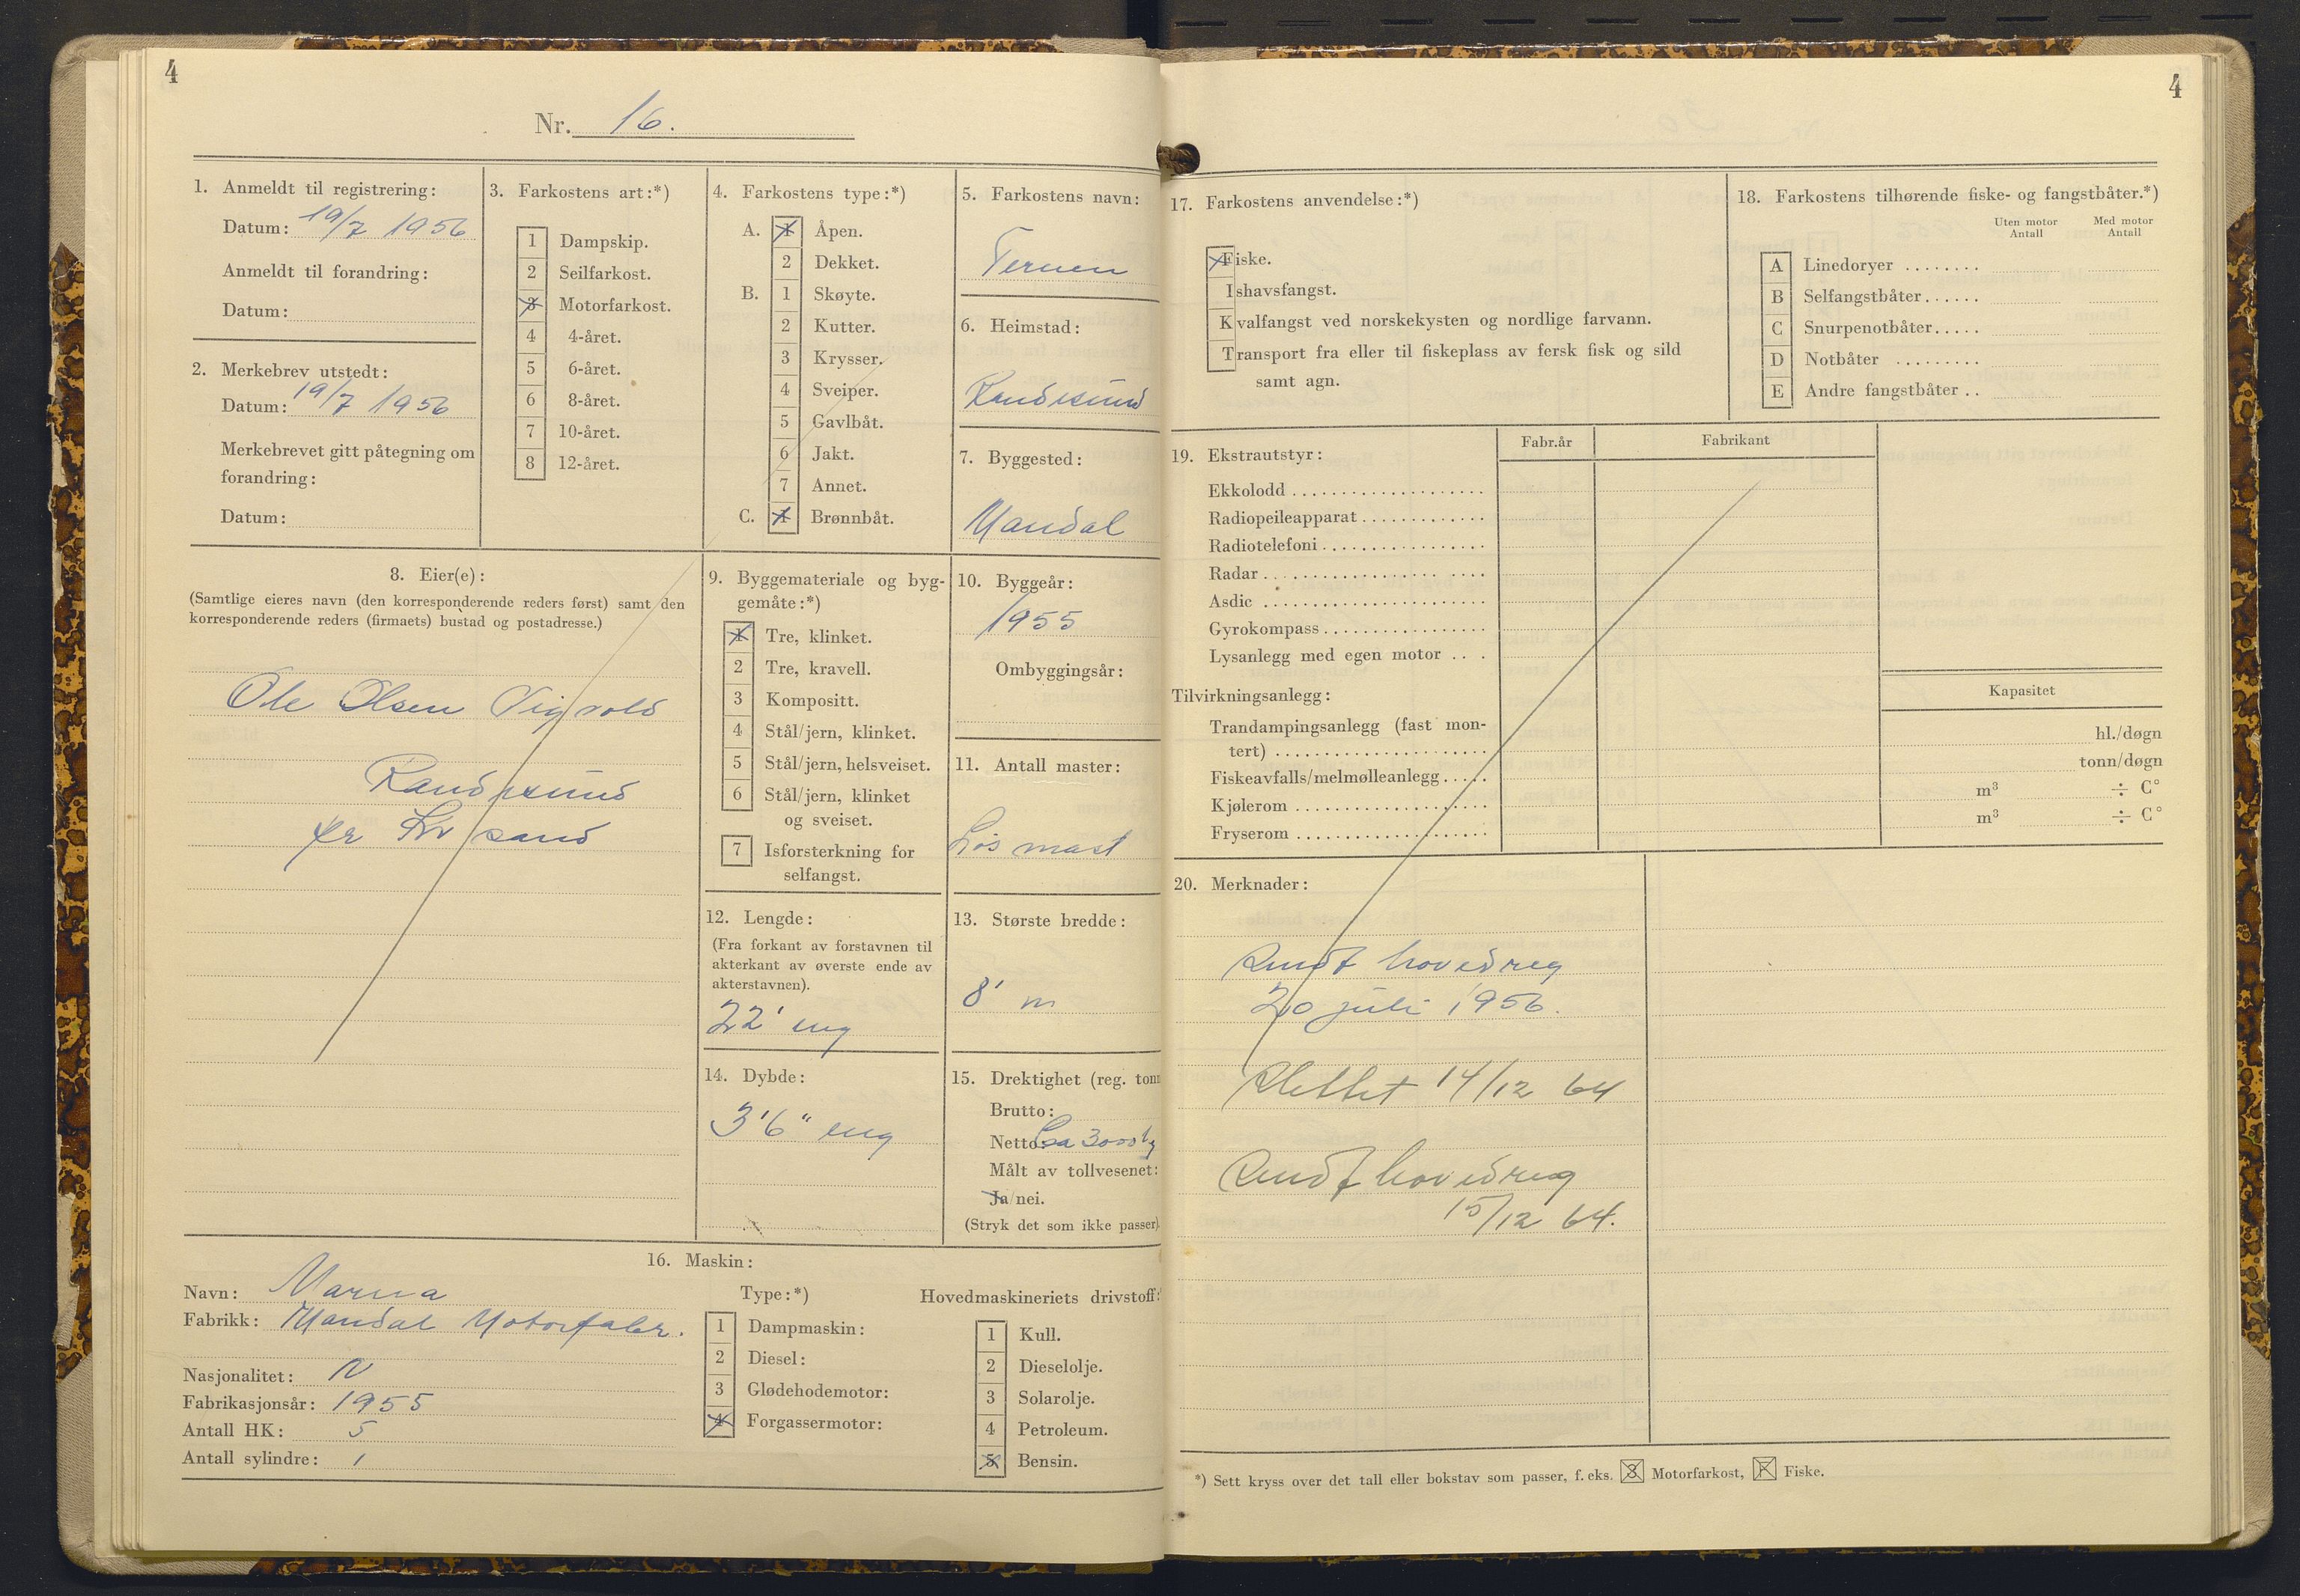 4
Nr. 16.
1. Anmeldt til registrering:
Datum: 19/7 1956
Anmeldt til forandring:
Datum:
2. Merkebrev utstedt:
Datum: 19/7 1956
Merkebrevet gitt påtegning om
forandring:
Datum:
3. Farkostens art:*)
1 Dampskip.
2 Seilfarkost.
3 Motorfarkost.
4 4-året.
5 6-året.
6 8-året.
7 10-året.
8 12-året.
4. Farkostens type:*)
A. 1 Åpen.
2 Dekket.
B. 1 Skøyte.
2 Kutter.
3 Krysser.
4 Sveiper.
5 Gavlbåt.
6 Jakt.
7 Annet.
C. 1 Brønnbåt.
5. Farkostens navn:
Ternen
6. Heimstad:
Randesund
7. Byggested:
Mandal
8. Eier(e):
(Samtlige eieres navn (den korresponderende reders først) samt den
korresponderende reders (firmaets) bustad og postadresse.)
Ole Olsen Vigvold
Randesund
pr Kr sand
9. Byggemateriale og byg-
gemåte:*)
1 Tre, klinket.
2 Tre, kravell.
3 Kompositt.
4 Stål/jern, klinket.
5 Stål/jern, helsveiset.
6 Stål/jern, klinket
og sveiset.
7 Isforsterkning for
selfangst.
10. Byggeår:
1955
Ombyggingsår:
11. Antall master:
Løs mast
12. Lengde:
(Fra forkant av forstavnen til
akterkant av øverste ende av
akterstavnen).
22' eng
13. Største bredde:
8' "
14. Dybde:
3'6" eng
15. Drektighet (reg. tonn
Brutto:
Netto: Ca 3000 kg
Målt av tollvesenet:
Ja/nei.
(Stryk det som ikke passer).
16. Maskin:
Navn: Marna
Fabrikk: Mandal Motorfabr.
Nasjonalitet: N
Fabrikasjonsår: 1955
Antall HK: 5
Antall sylindre: 1
Type:*)
1 Dampmaskin:
2 Diesel:
3 Glødehodemotor:
4 Forgassermotor:
Hovedmaskineriets drivstoff:
1 Kull.
2 Dieselolje.
3 Solarolje.
4 Petroleum.
5 Bensin.
4
17. Farkostens anvendelse:*)
Fiske.
Ishavsfangst.
Kvalfangst ved norskekysten og nordlige farvann.
Transport fra eller til fiskeplass av fersk fisk og sild
samt agn.
18. Farkostens tilhørende fiske- og fangstbåter.*)
Uten motor Med motor
Antall Antall
A Linedoryer ........
B Selfangstbåter......
C Snurpenotbåter.....
D Notbåter .........
E Andre fangstbåter ..
19. Ekstrautstyr:
Fabr.år Fabrikant
Ekkolodd ....................
Radiopeileapparat .............
Radiotelefoni .................
Radar ....................
Asdic .......................
Gyrokompass .................
Lysanlegg med egen motor ...
Tilvirkningsanlegg:
Kapasitet
Trandampingsanlegg (fast mon-
tert) ...................... hl./døgn
Fiskeavfalls/melmølleanlegg ..... tonn/døgn
Kjølerom .................... m³ ÷ C°
Fryserom .................... m³ ÷ C°
20. Merknader:
Sendt hovedreg
20 juli 1956.
Slettet 14/12 64
Sendt hovedreg
15/12 64.
*) Sett kryss over det tall eller bokstav som passer, f. eks. 3 Motorfarkost, F Fiske.